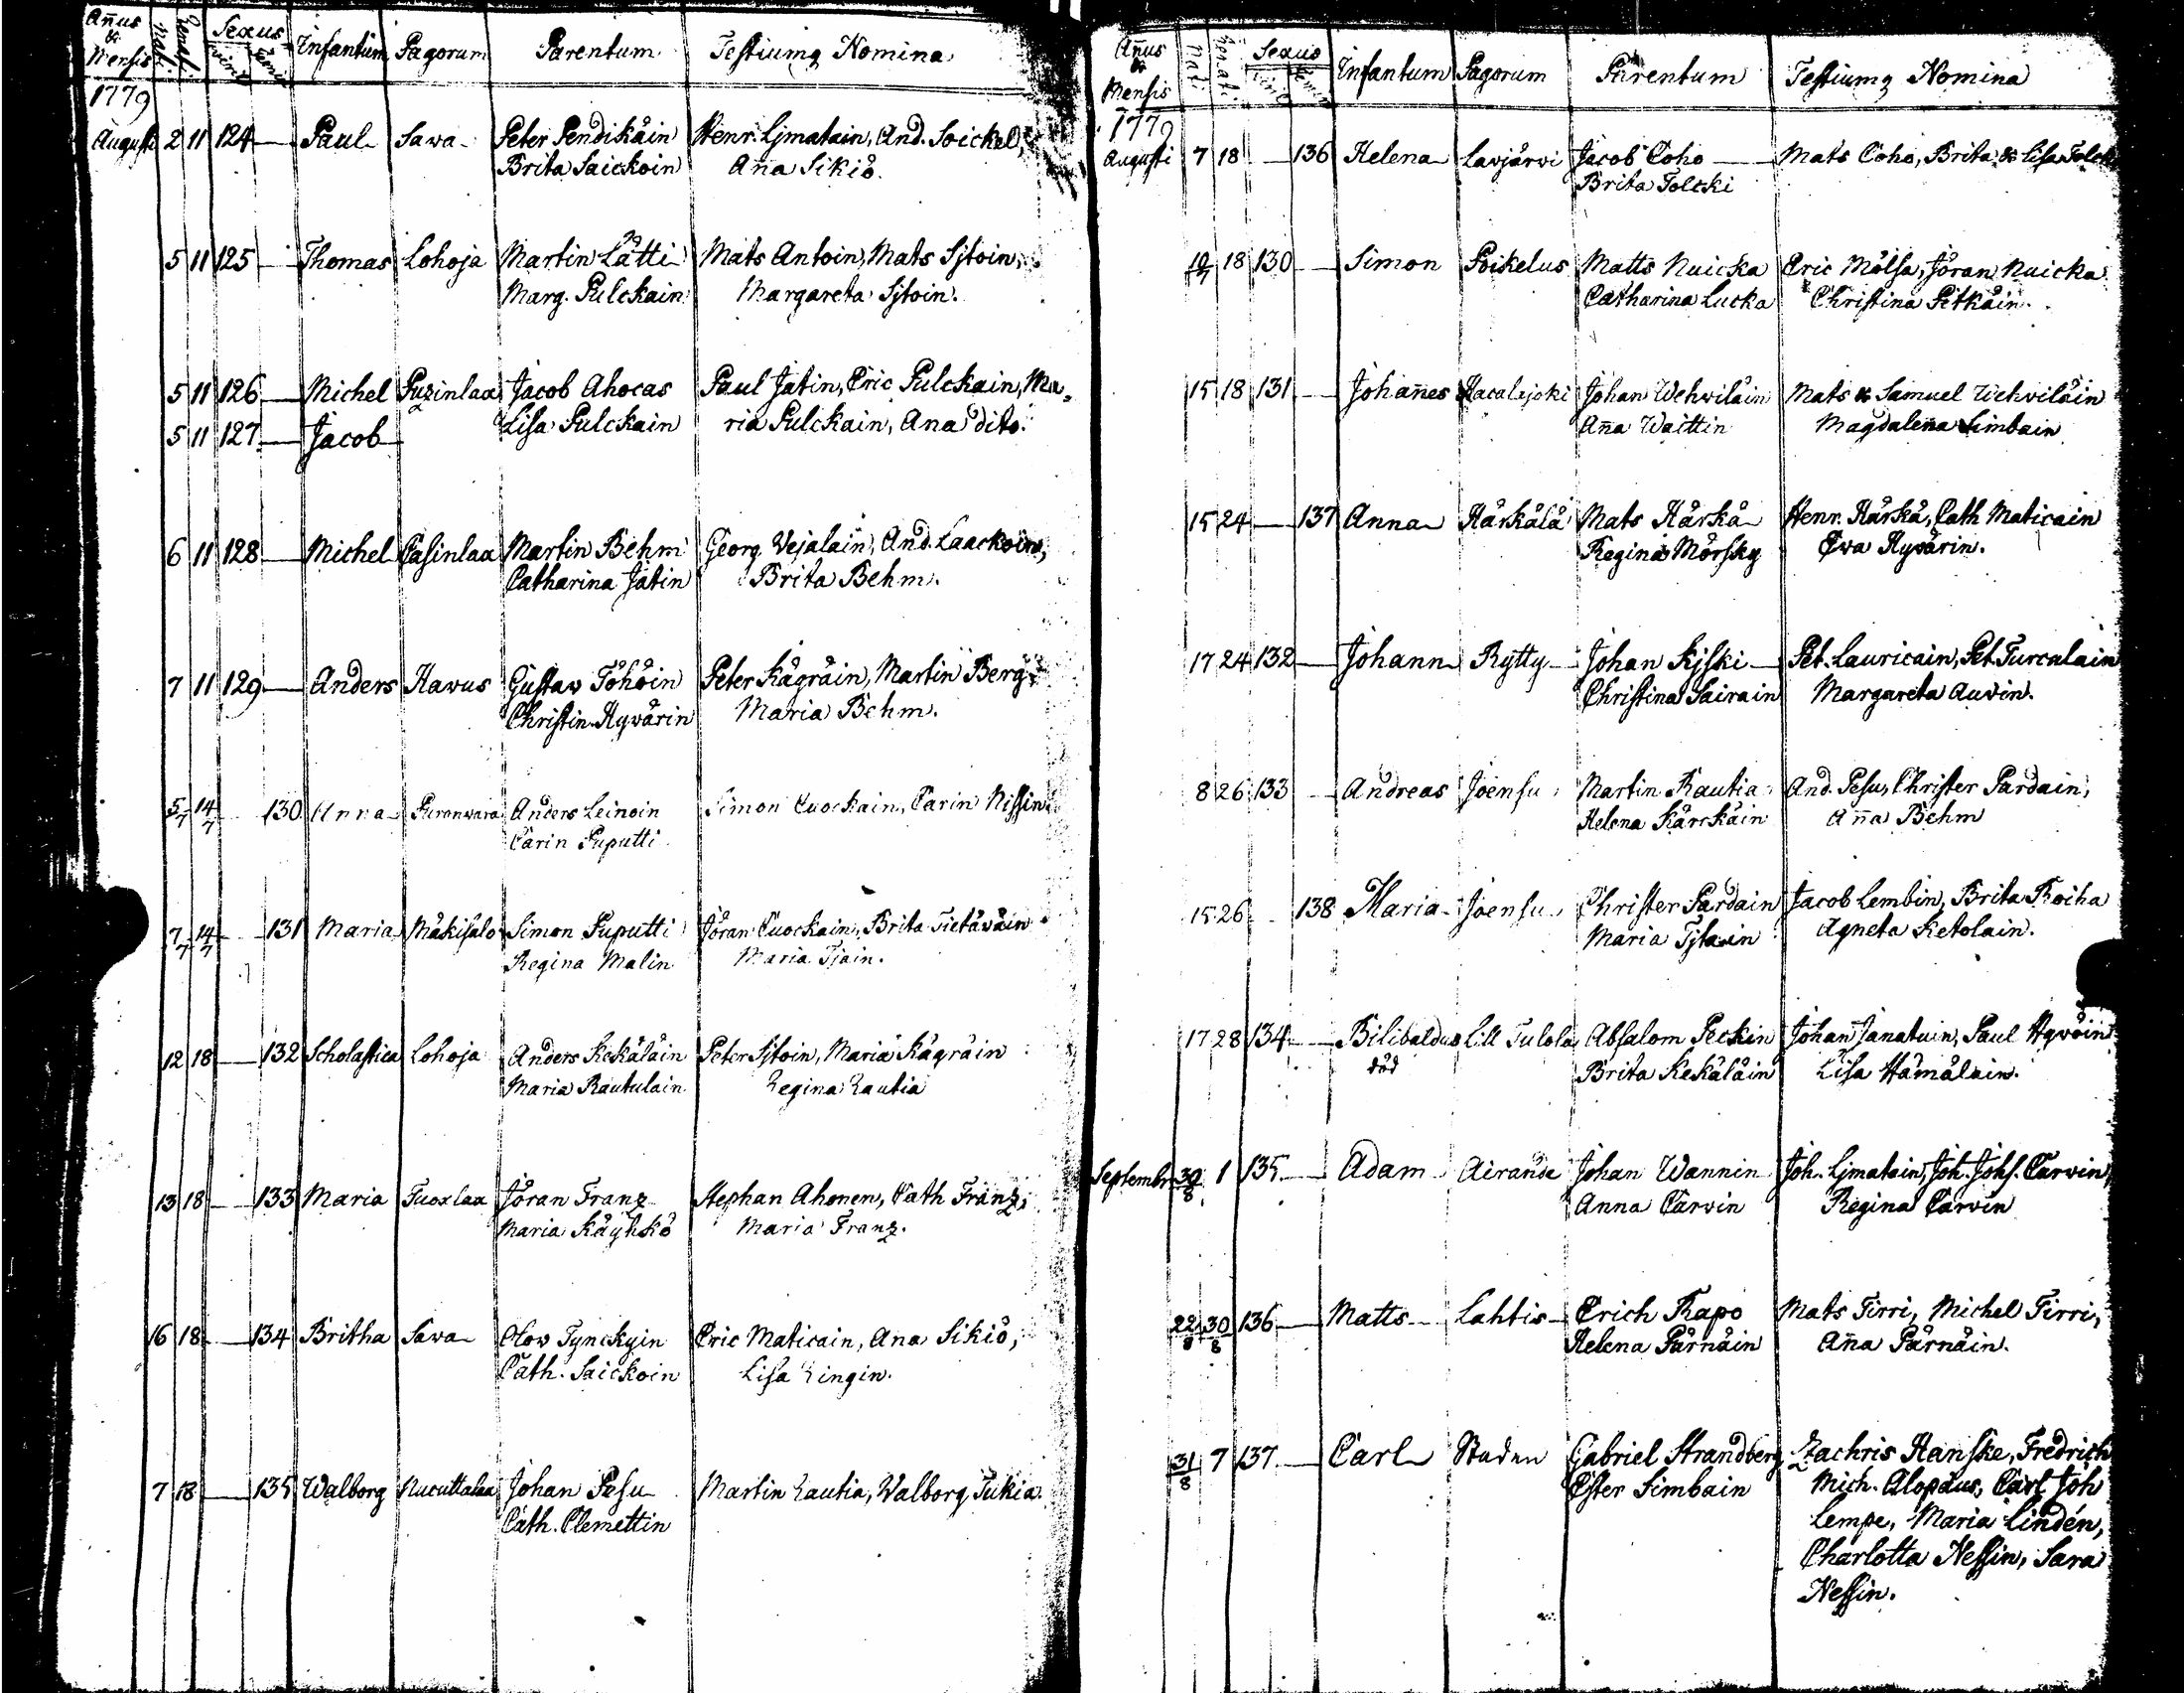 Añus & Mensis Nati Renati Sexus Infantum Pagorum Parentum Testiumq Nomina
1779
Augusti 2 11 124 Paul Sawa Peter Pendikäin Henr. Ljmatain, And. Soickel,
Brita Saickoin Aña Sikiö.
5 11 125 Thomas Lohoja Martin Lätti Mats Antoin, Mats Sjtoin,
Marg. Pulckain Margareta Sjtoin.
5 11 126 Michel Puzinlax Jacob Ahocas Paul Jatin, Eric Pulckain, Ma-
5 11 127 Jacob Lisa Pulckain ria Pulckain, Ana dito.
6 11 128 Michel Casinlax Martin Behm Georg Wejalain, And. Laackoin,
Catharina Jatin Brita Behm.
7 11 129 Anders Hawus Gustav Töhöin Peter Kägräin, Martin Berg
Christin. Hyvärin Maria Behm.
5/7 14/7 130 Anna Puronwara Anders Leinoin Simon Cuockain, Carin Nissin
Carin Puputti
7/7 14/7 131 Maria Mäkisalo Simon Puputti Jöran Cuockain, Brita Tietäväin
Regina Malin Maria Tjain.
12 18 132 Scholastica Lohoja Anders Kekäläin Peter Sjtoin, Maria Kägräin
Maria Rautulain Regina Rautia
13 18 133 Maria Tuoxlax Jöran Franz Stephan Ahonen, Cath Franz,
Maria Käyhkö Maria Franz.
16 18 134 Britha Sawa Olov Tynckyin Eric Maticain, Ana Sikiö,
Cath. Saickoin Lisa Ringin.
7 18 135 Walborg Nucuttalax Johan Pesu Martin Rautia, Walborg Tukia.
Cath. Clemettin
Añus & Mensis Nati Renati Sexus Infantum Pagorum Parentum Testiumq Nomina
1779
Augusti 7 18 136 Helena Lavjärvi Jacob Coho Mats Coho, Brita & Lisa Tolcki
Brita Tolcki
19/7 18 130 Simon Poikelus Matts Nuicka Eric Mölsa, Jöran Nuicka
Catharina Lucka Christina Pitkäin.
15 18 131 Johañes Hacalijoki Johan Wehviläin Mats & Samuel Wehviläin
Aña Waittin Magdalena Simbain
15 24 137 Anna Härkälä Mats Härkä Henr. Härkä, Cath Maticain
Regina Mörsky Ewa Hyvärin.
17 24 132 Johann Rytty Johan Kjski Pet. Lauricain, Pet. Turculain
Christina Sairain Margareta Auvin.
8 26 133 Andreas Joensu Martin Rautia And. Pesu, Christer Pardain,
Helena Kärckäin Aña Behm
15 26 138 Maria Joensu Christer Pardain Jacob Lembin, Brita Roiha
Maria Tjtain Agneta Ketolain.
17 28 134 Bilibaldus Lill Tulola Absalom Peckin Johan Janatuin, Paul Hyvöin
död Brita Kekäläin Lisa Hämäläin.
Septembr 30/8 1 135 Adam Airanda Johan Wannin Joh. Ljmatain, Joh. Johs. Carvin,
Anna Carvin Regina Carvin
22/8 30/8 136 Matts Lahtis Erich Rapo Mats Tirri, Michel Tirri,
Helena Pärnäin Aña Pärnäin.
31/8 7 137 Carl Staden Gabriel Strandberg Zachris Hanske, Fredrich
Ester Simbain Mich. Alopæus, Carl Joh
Lempe, Maria Lindén,
Charlotta Nessin, Sara
Nessin.